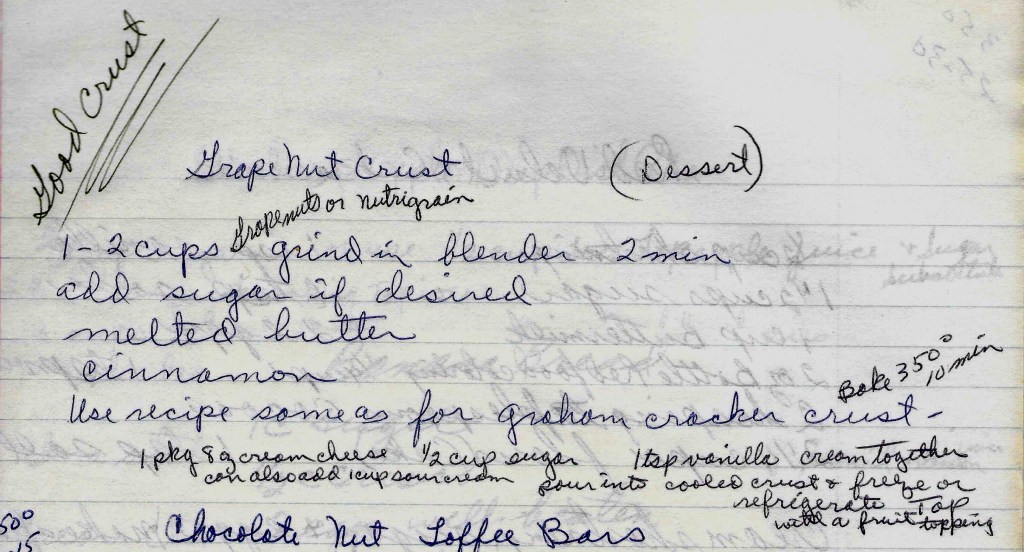 Good Crust
Grape Nut Crust (Dessert)
Grapenuts or nutrigrain
1-2 cups grind in blender 2 min
add sugar if desired
melted butter
cinnamon
Bake 350° 10 min
Use recipe same as for graham cracker crust -
1 pkg 8 oz cream cheese 1/2 cup sugar 1 tsp vanilla cream together
can also add 1 cup sour cream pour into cooled crust & freeze or
refrigerate Top
with a fruit topping
Chocolate Nut Toffee Bars